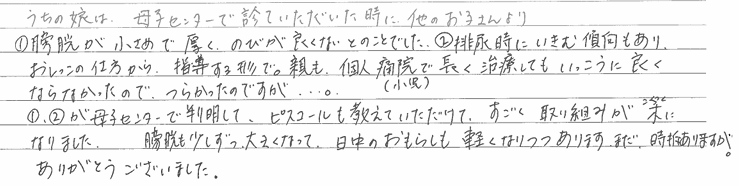 うちの娘は、母子センターで診ていただいた時に、他のお子さんより
①膀胱が小さめで厚く、のびが良くないとのことでした。②排尿時にいきむ傾向もあり、
おしっこの仕方から、指導する形で。親も、個人病院で長く治療してもいっこうに良く
(小児)
ならなかったので、つらかったのですが...。
①、②が母子センターで判明して、ピスコールも教えていただけて、すごく取り組みが楽に
なりました。膀胱も少しずつ大きくなって、日中のおもらしも軽くなりつつあります。まだ、時折ありますが。
ありがとうございました。